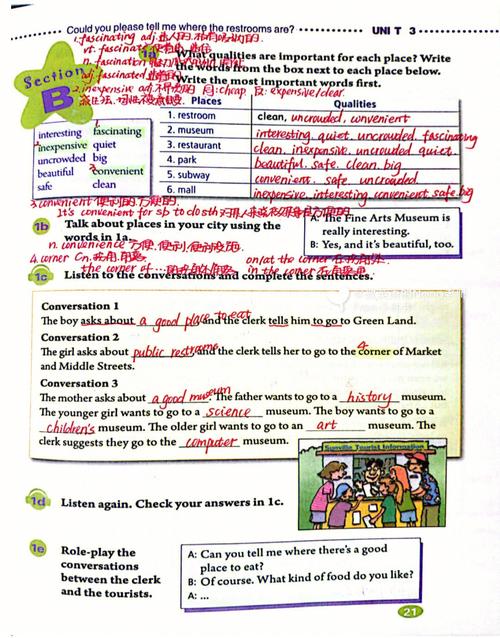 Could you please tell me where the restrooms are?
UNIT 3
1.fascinating adj.迷人的.
vt. fascinate
n. fascination
adj. fascinated
2. inexpensive adj. 同:cheap 反: expensive/dear.
Section B
1a What qualities are important for each place? Write
the words from the box next to each place below.
Write the most important words first.
interesting fascinating
inexpensive quiet
uncrowded big
beautiful convenient
safe clean
Places Qualities
1. restroom clean, uncrowded, convenient
2. museum interesting. quiet. uncrowded. fascinating
3. restaurant clean. inexpensive. uncrowded. quiet.
4. park beautiful. safe. clean. big
5. subway convenient. safe. uncrowded.
6. mall inexpensive. interesting. convenient. safe. big
3. convenient 便利的.方便的.
It's convenient for sb to do sth
1b Talk about places in your city using the
words in 1a.
A: The Fine Arts Museum is
really interesting.
B: Yes, and it's beautiful, too.
n. convenience 方便.便利.
4. corner Cn.
the corner of ... in the corner
on/at the corner
1c Listen to the conversations and complete the sentences.
Conversation 1
The boy asks about a good place to eat and the clerk tells him to go to Green Land.
Conversation 2
The girl asks about public restrooms and the clerk tells her to go to the corner of Market
and Middle Streets.
Conversation 3
The mother asks about a good museum. The father wants to go to a history museum.
The younger girl wants to go to a science museum. The boy wants to go to a
children's museum. The older girl wants to go to an art museum. The
clerk suggests they go to the computer museum.
Sunville Tourist Information
1d Listen again. Check your answers in 1c.
1e Role-play the
conversations
between the clerk
and the tourists.
A: Can you tell me where there's a good
place to eat?
B: Of course. What kind of food do you like?
A: ...
21